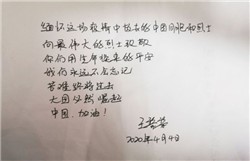 缅怀这场役情中逝去的中国同胞和烈士
向最伟大的烈士致敬
你们用生命换来的平安
我们永远不会忘记
苦难终将过去
大国必然崛起
中国，加油！
王
2020年4月4日